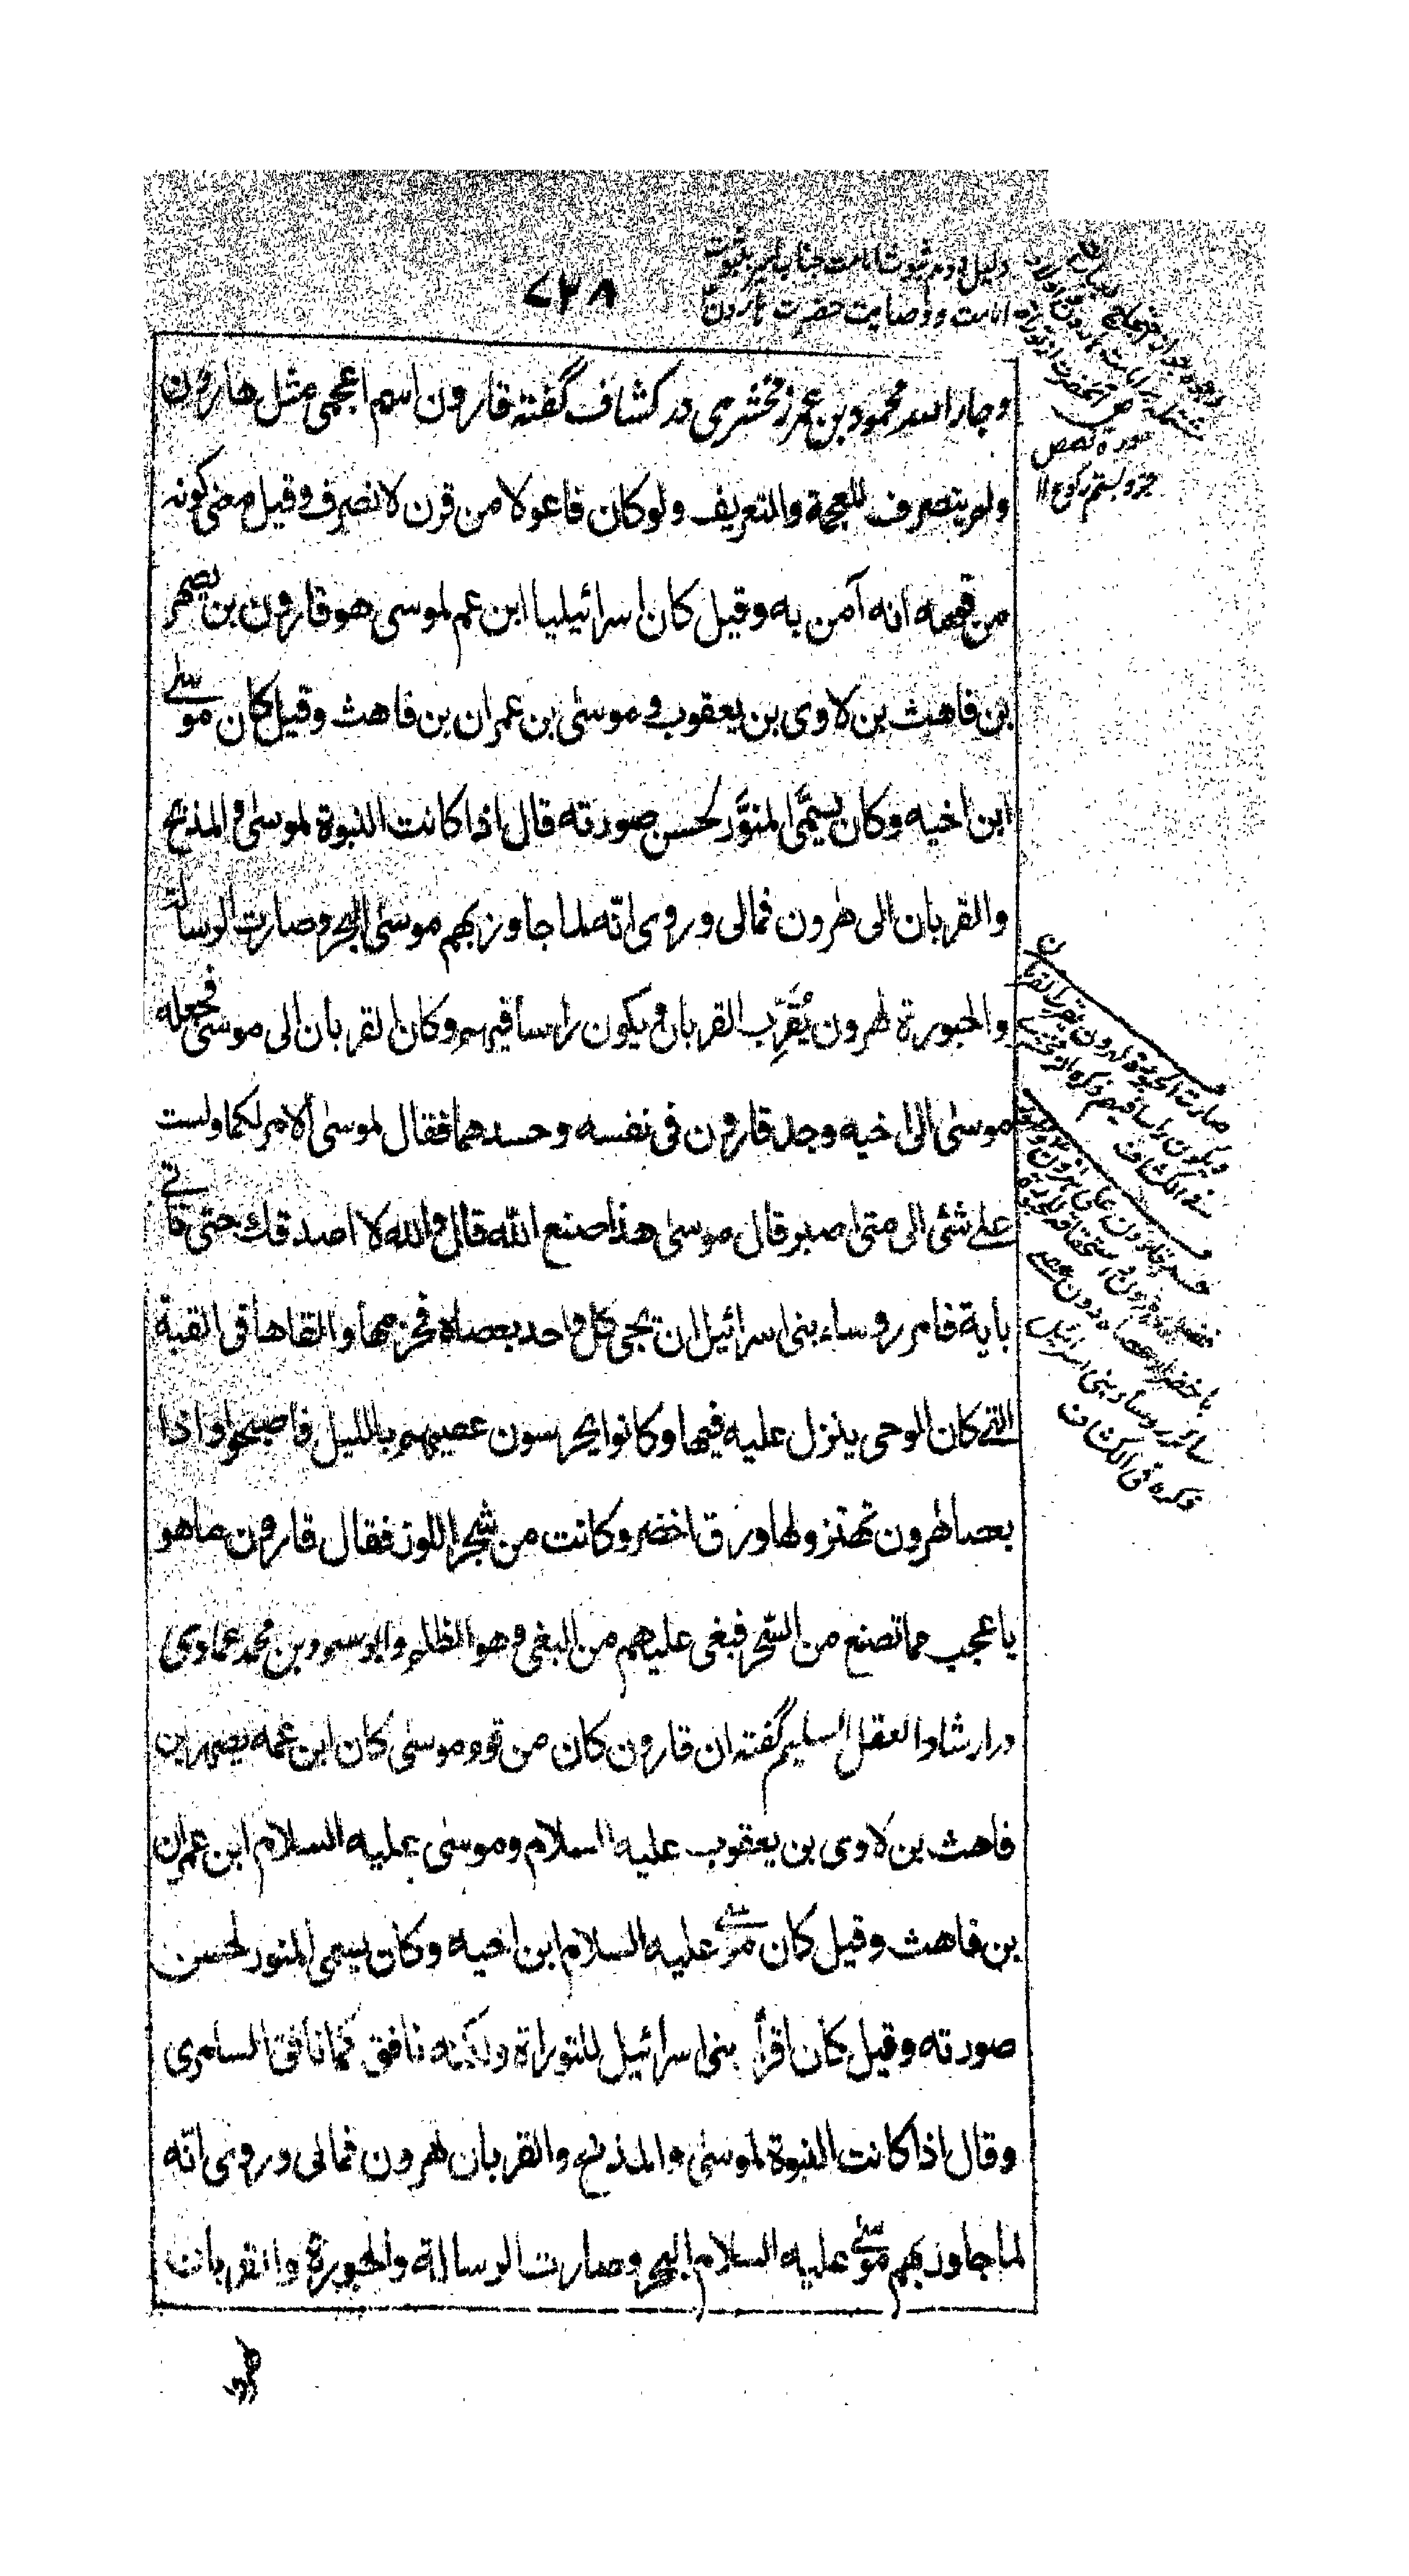 ۷۳۸
دلیل دوم ثبوت امامت جناب امیر بثبوت
امامت و وصایت حضرت هارون
وجار الله محمود بن عمر زمخشری در کشاف گفته قارون اسم اعجمی مثل هارون
ولم ینصرف للعجمة والتعریف ولو کان فاعولا من قرن لانصرف وقیل معنی کونه
من قومه انه آمن به وقیل کان اسرائیلیا ابن عم لموسی هو قارون بن یصهر
بن قاهث بن لاوی بن یعقوب و موسی بن عمران بن قاهث وقیل کان موسی
ابن اخیه وکان یسمّی المنوَّر لحسن صورته قال اذا کانت النبوة لموسی و المذبح
والقربان الی هرون فمالی وروی انّه لما جاوز بهم موسی البحر وصارت الرسالة
والحبورة لهرون یُقَرِّب القربان و یکون راسا فیهم وکان القربان الی موسی فجعله
موسی الی اخیه وجد قارون فی نفسه وحسدهما فقال لموسی الامر لکما ولست
علی شئ الی متی اصبر قال موسی هذا صنع الله قال والله لا اصدقك حتی تاتی
بایة فامر روساء بنی اسرائیل ان یجی کل واحد بعصاه فحزمها والقاها فی القبة
التی کان الوحی ینزل علیه فیها وکانوا یحرسون عصیهم باللیل فاصبحوا واذا
بعصا هرون تهتز ولها ورق اخضر وکانت من شجر اللوز فقال قارون ما هو
باعجب مما تصنع من السحر فبغی علیهم من البغی و هو الظلم وابو سعود بن محمد عمادی
در ارشاد العقل السلیم گفته ان قارون کان من قوم موسی کان ابن عمه یصهر بن
قاهث بن لاوی بن یعقوب علیه السلام وموسی علیه السلام ابن عمران
بن قاهث وقیل کان موسی علیه السلام ابن اخیه وکان یسمی المنور لحسن
صورته وقیل کان اقرأ بنی اسرائیل للتوراة ولکنه نافق کما نافق السامری
وقال اذا کانت النبوة لموسی والمذبح والقربان لهرون فمالی وروی انّه
لما جاوز بهم موسی علیه السلام البحر وصارت الرسالة والحبورة والقربان
لهرون
سورة قصص
صارت الحبورة لهرون یقرب القربان
ویکون راسا فیهم ذکره الزمخشری
فی الکشاف
سائر روساء بنی اسرائیل
ذکره فی الکشاف